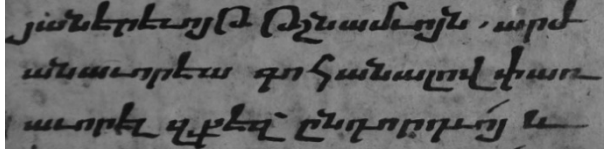 յաներեւոյթ թշնամւոյն. արժ
անաւորեա գոհանալով փառ
աւորել զքեզ ընդ որդւոյ և